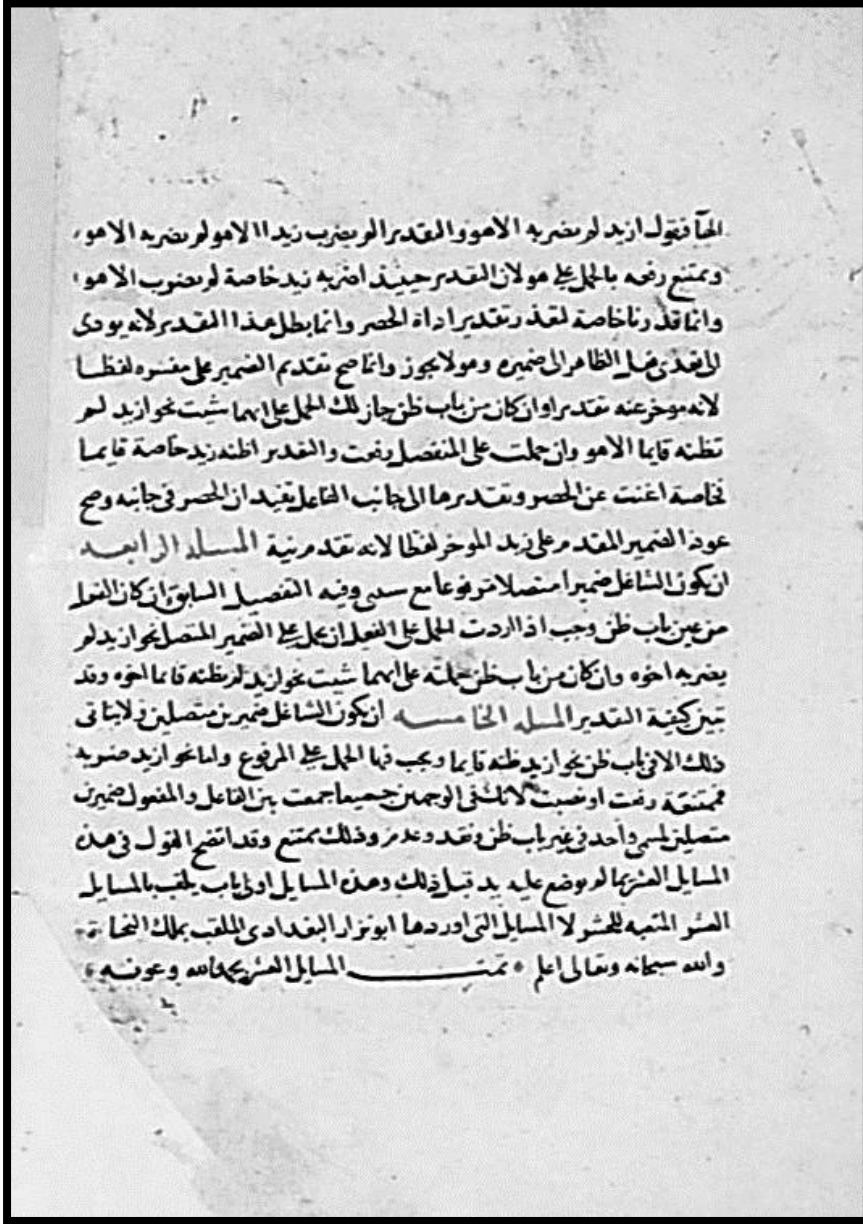 الهآ فتقول ازيد لم يضربه الا هو والتقدير الم يضرب زيدا الا هو لم يضربه الا هو
ويمتنع رفعه بالحمل على هو لان التقدير حينيذ اضربه زيد خاصة لم يضرب الا هو
وانما قدرنا خاصة لتعذر تقدير اداة الحصر وانما بطل هذا التقدير لانه يودى
الى تعدى فعل الظاهر الى ضميره وهو لا يجوز وانما صح تقديم الضمير على مفسره لفظا
لانه موخر عنه تقديرا وان كان من باب ظن جاز لك الحمل على ايهما شيت نحو ازيد لم
تظنه قايما الا هو وان حملت على المنفصل رفعت والتقدير اظنه زيد خاصة قايما
فخاصة اغنت عن الحصر وتقديرها الى جانب الفاعل تفيد ان الحصر فى جانبه وصح
عود الضمير المقدم على زيد الموخر لفظا لانه تقدم نية المسله الرابعه
ان يكون الشاغل ضميرا متصلا مرفوعا مع سببى وفيه التفصيل السابق ان كان الفعل
من غير باب ظن وجب اذا اردت الحمل على الفعل ان يحمل على الضمير المتصل نحو ازيد لم
يضربه اخوه وان كان من باب ظن حملته على ايهما شيت نحو ازيد لم يظنه قايما اخوه وقد
تبين كيفية التقدير المسله الخامسه ان يكون الشاغل ضميرين متصلين ولا يتاتى
ذلك الا فى باب ظن نحو ازيد ظنه قايما ويجب فيها الحمل على المرفوع واما نحو ازيد ضربه
فممتنعة رفعت او نصبت لانك فى الوجهين جميعا جمعت بين الفاعل والمفعول ضميرين
متصلين لمسمى واحد فى غير باب ظن وفقد وعدم وذلك ممتنع وقد اتضح القول فى هذه
المسايل العشر بما لم يوضع عليه يد قبل ذلك وهذه المسايل اولى باب يلقب بالمسايل
العشر المتعبه للحشر لا المسايل التى اوردها ابو نزار البغدادى الملقب بملك النحاة
والله سبحانه وتعالى اعلم تمت المسايل العشر بحمد الله وعونه